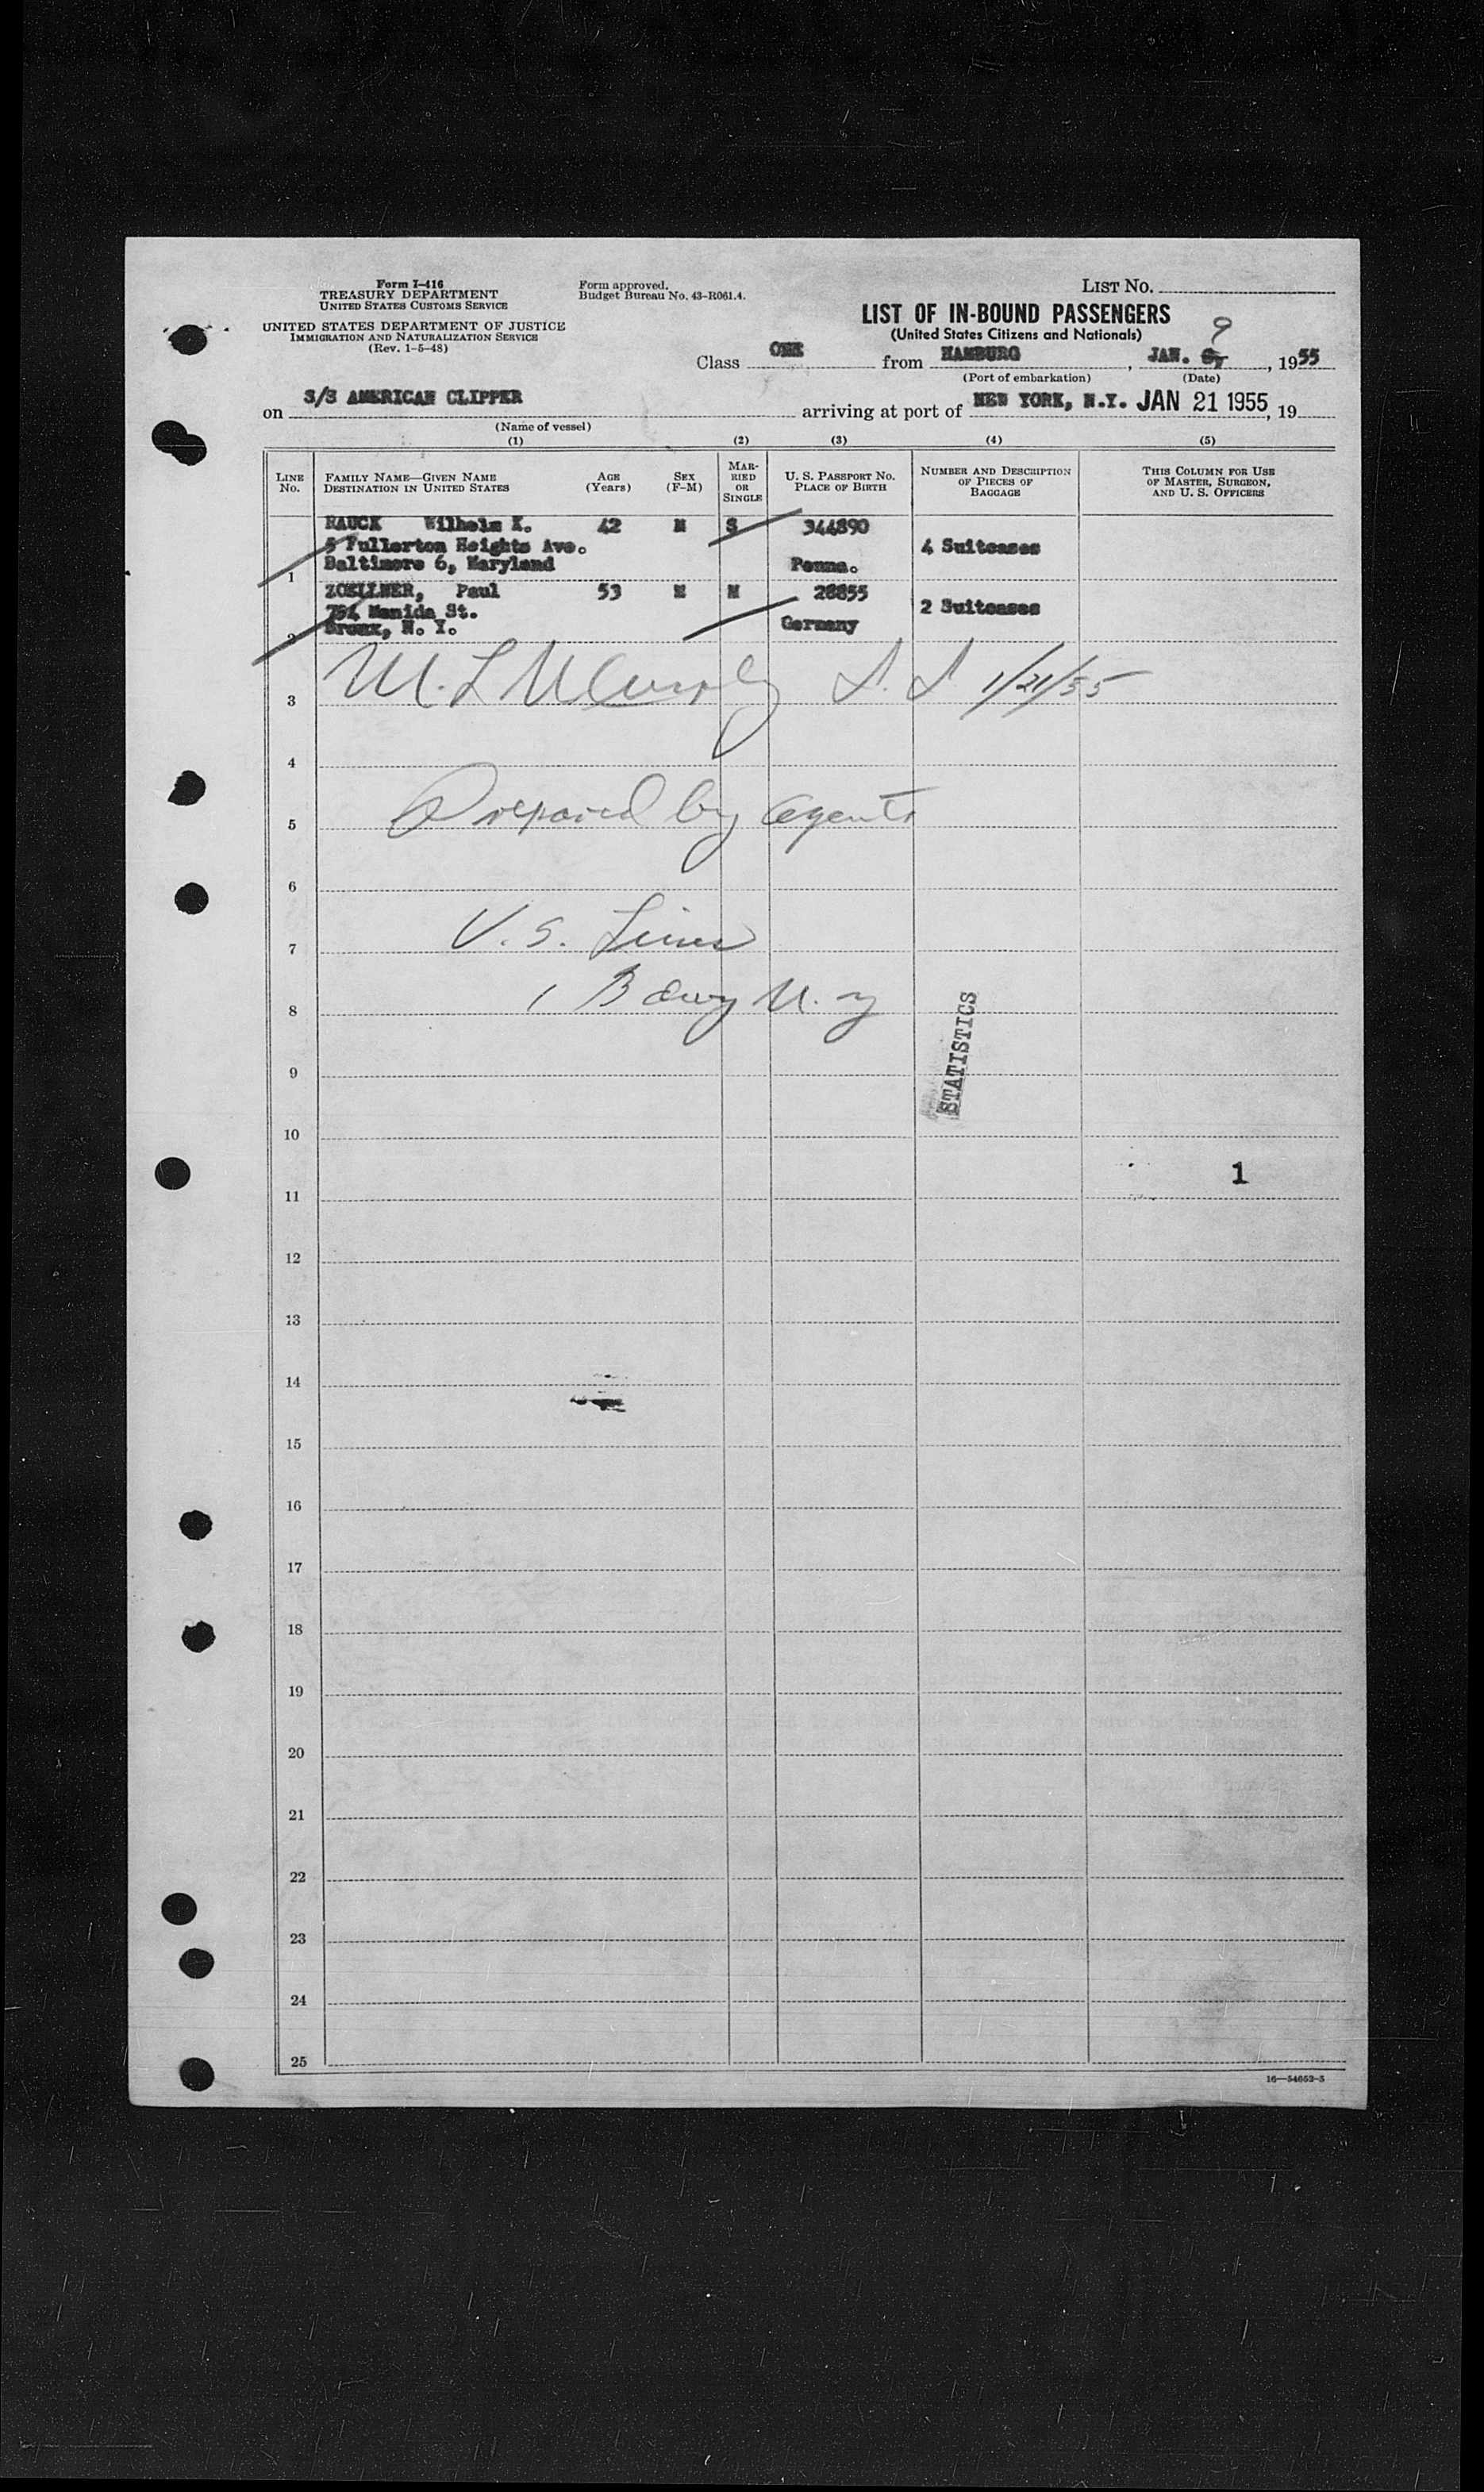 Form I-416
TREASURY DEPARTMENT
UNITED STATES CUSTOMS SERVICE
UNITED STATES DEPARTMENT OF JUSTICE
IMMIGRATION AND NATURALIZATION SERVICE
(Rev. 1-5-48)
Form approved.
Budget Bureau No. 43-R061.4.
LIST NO.
LIST OF IN-BOUND PASSENGERS
(United States Citizens and Nationals)
9
Class ONE from HAMBURG, JAN. , 1955
(Port of embarkation) (Date)
on S/S AMERICAN CLIPPER arriving at port of NEW YORK, N.Y. JAN 21 1955, 19
(Name of vessel)
(1) (2) (3) (4) (5)
LINE NO. FAMILY NAME—GIVEN NAME DESTINATION IN UNITED STATES AGE (Years) SEX (F-M) MARRIED OR SINGLE U. S. PASSPORT NO. PLACE OF BIRTH NUMBER AND DESCRIPTION OF PIECES OF BAGGAGE THIS COLUMN FOR USE OF MASTER, SURGEON, AND U. S. OFFICERS
RAUCK Wilhelm K. 42 M S 344890
5 Fullerton Heights Ave. 4 Suitcases
1 Baltimore 6, Maryland Penna.
ZOELLNER, Paul 53 M M 28855
754 Manida St. 2 Suitcases
2 Bronx, N. Y. Germany
3 M. L Murphy 1/21/55
4
5 Prepared by agents
6
7 U.S. Lines
8 1 Bdwy N. Y
STATISTICS
9
10
1
11
12
13
14
15
16
17
18
19
20
21
22
23
24
25
16—54652-5